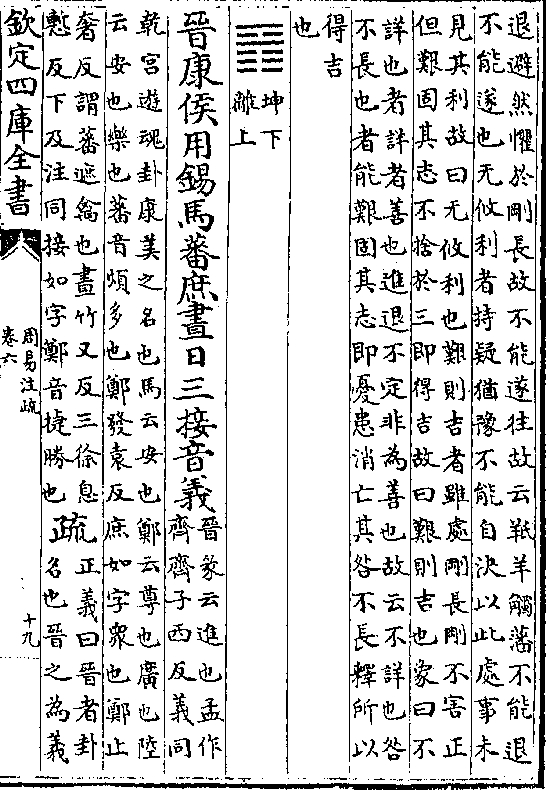 退避然懼於剛長故不能遂往故云羝羊觸藩不能退
不能遂也无攸利者持疑猶豫不能自決以此處事未
見其利故曰无攸利也艱則吉者雖處剛長剛不害正
但艱固其志不捨於三即得吉故曰艱則吉也象曰不
詳也者詳者善也進退不定非為善也故云不詳也咎
不長也者能艱固其志即憂患消亡其咎不長釋所以
得吉
也
坤下
離上
晉康侯用錫馬蕃庶晝日三接音義
晉彖云進也孟作
齊齊子西反義同
乾宮遊魂卦康美之名也馬云安也鄭云尊也廣也陸
云安也樂也蕃音煩多也鄭發袁反庶如字衆也鄭止
奢反謂蕃遮禽也晝竹又反三徐息
慙反下及注同接如字鄭音捷勝也
疏
正義曰晉者卦
名也晉之為義
欽定四庫全書
周易注疏
卷六
十九